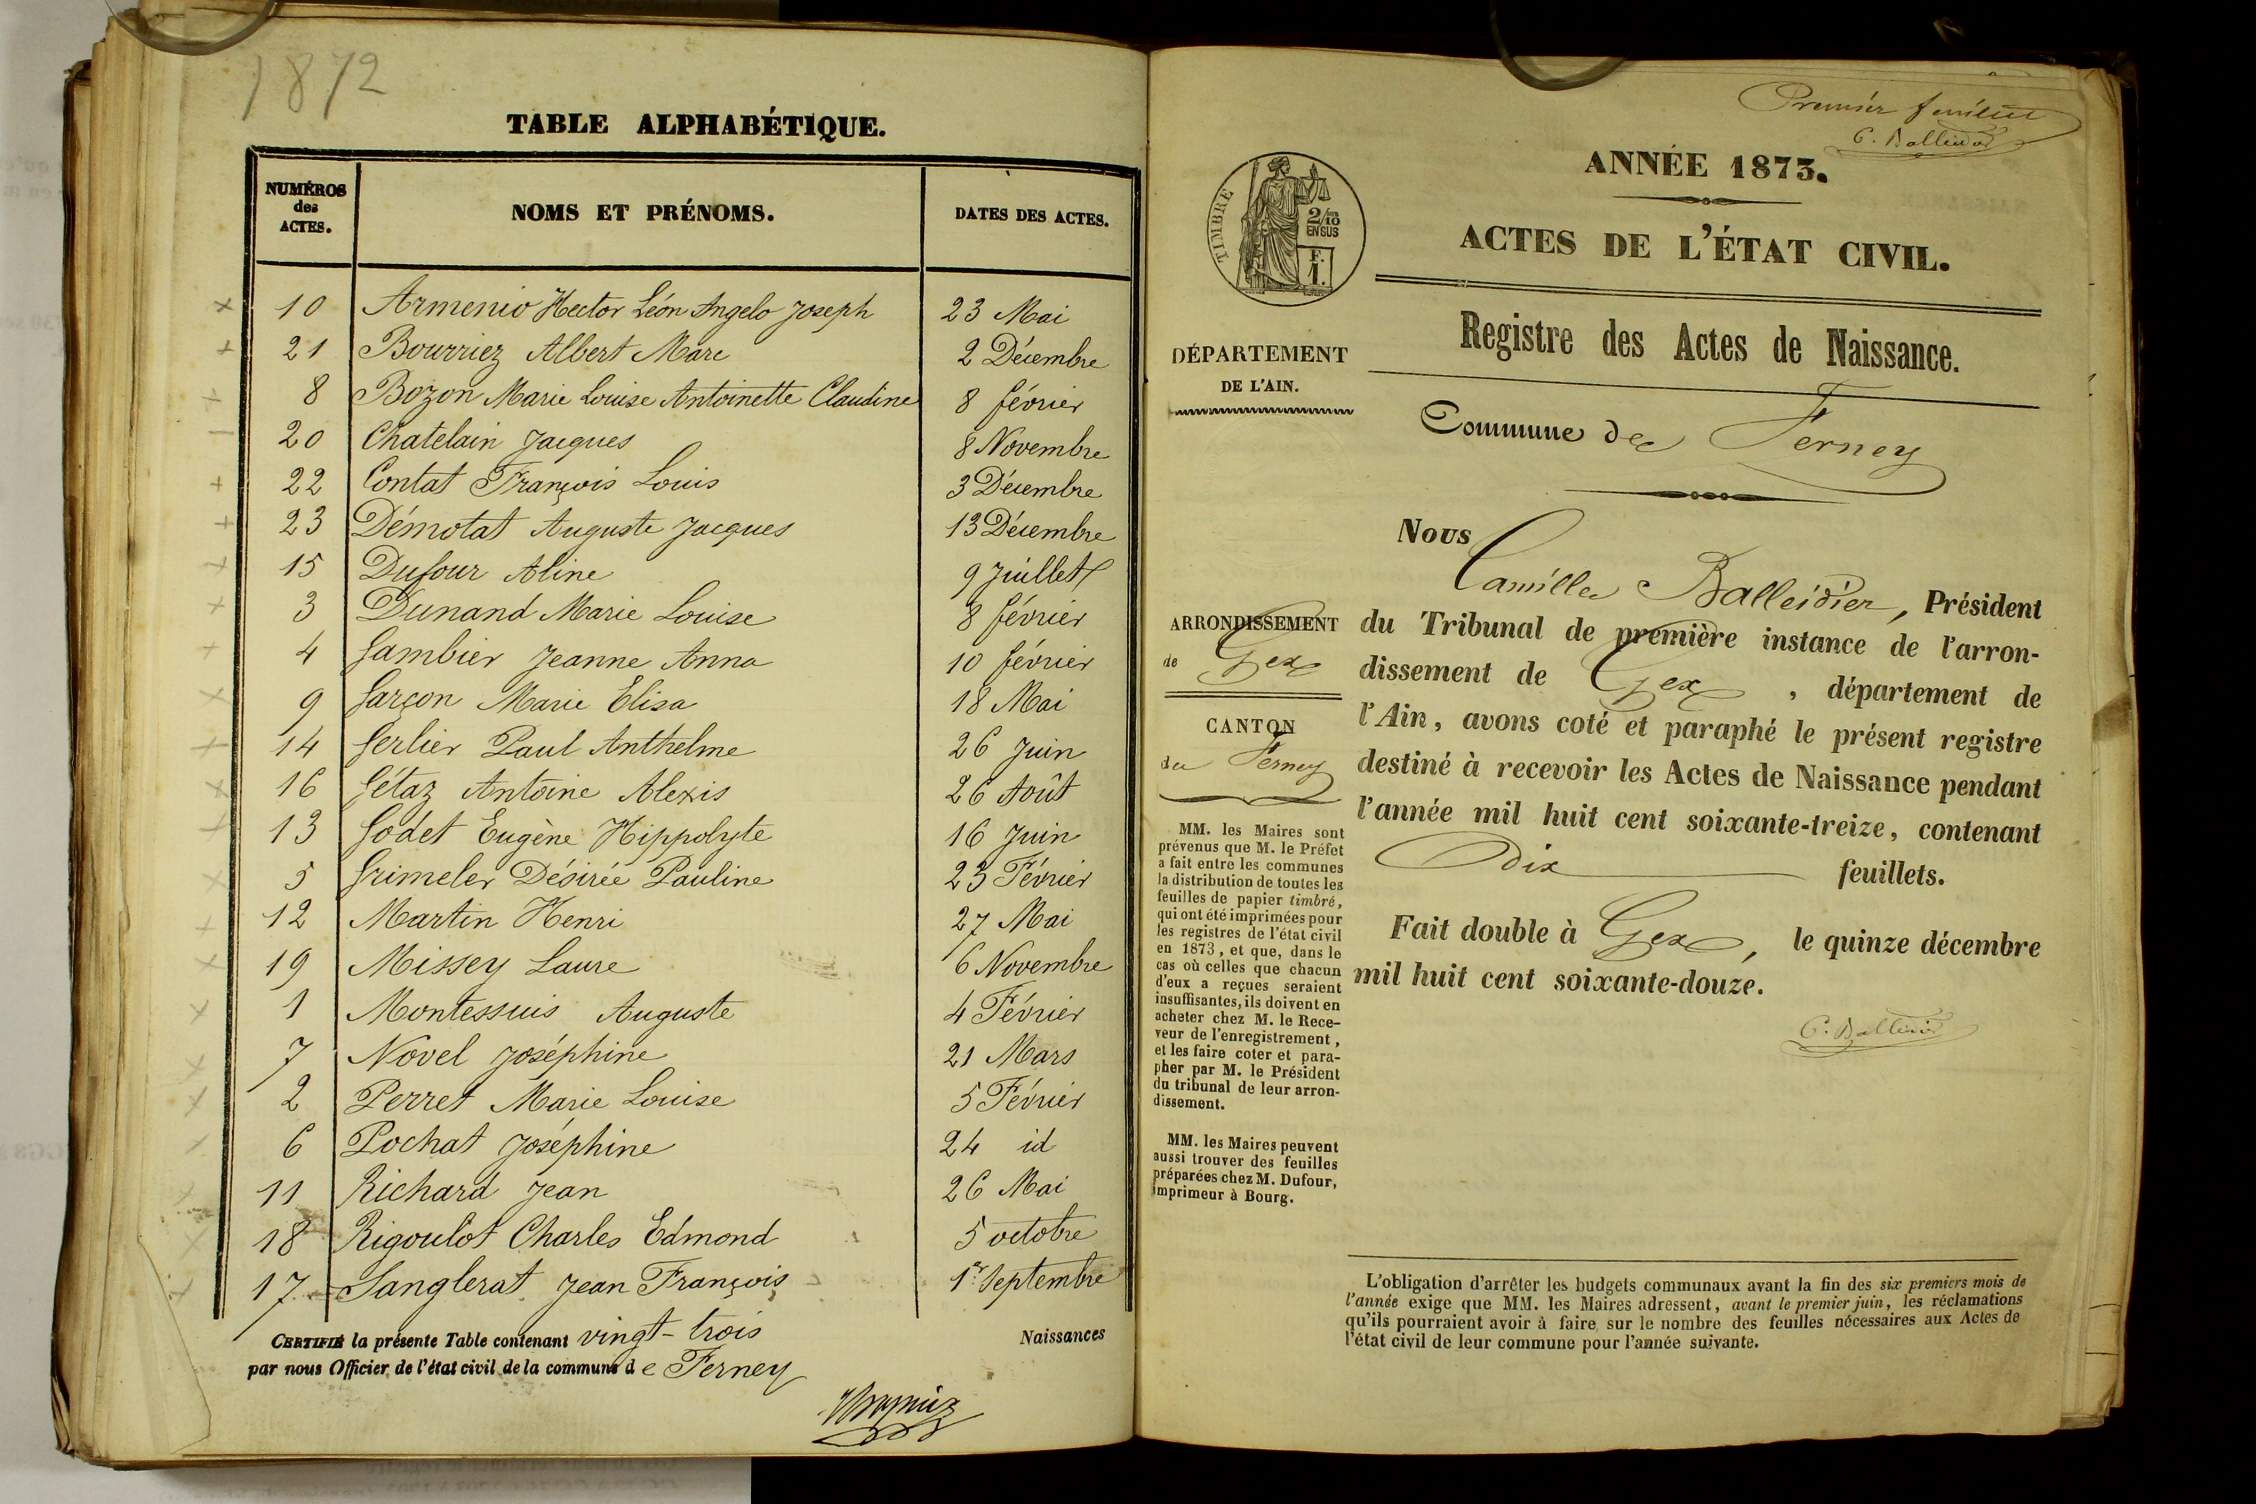 1872
TABLE ALPHABÉTIQUE.
NUMÉROS des ACTES. NOMS ET PRÉNOMS. DATES DES ACTES.
10 Armenio Hector Léon Angelo Joseph 23 Mai
21 Bourriez Albert Marc 2 Décembre
8 Bozon Marie Louise Antoinette Claudine 8 février
20 Chatelain Jacques 8 Novembre
22 Contat François Louis 3 Décembre
23 Démotat Auguste Jacques 13 Décembre
15 Dufour Aline 9 Juillet
3 Dunand Marie Louise 8 février
4 Gambier Jeanne Anna 10 février
9 Garçon Marie Elisa 18 Mai
14 Gerlier Paul Anthelme 26 Juin
16 Gétaz Antoine Alexis 26 Août
13 Godet Eugène Hippolyte 16 Juin
5 Grimeler Désirée Pauline 23 Février
12 Martin Henri 27 Mai
19 Missey Laure 6 Novembre
1 Montessuis Auguste 4 Février
7 Novel Joséphine 21 Mars
2 Perret Marie Louise 5 Février
6 Pochat Joséphine 24 id
11 Richard Jean 26 Mai
18 Rigoulot Charles Edmond 5 octobre
17 Sanglerat Jean François 1er Septembre
CERTIFIÉ la présente Table contenant vingt-trois Naissances
par nous Officier de l'état civil de la commune de Ferney
Premier feuillet
C. Balleidier
ANNÉE 1873.
ACTES DE L'ÉTAT CIVIL.
TIMBRE
2/10
EN SUS
F.
1.
Registre des Actes de Naissance.
DÉPARTEMENT
DE L'AIN.
Commune de Ferney
ARRONDISSEMENT
de Gex
CANTON
de Ferney
MM. les Maires sont
prévenus que M. le Préfet
a fait entre les communes
la distribution de toutes les
feuilles de papier timbré,
qui ont été imprimées pour
les registres de l'état civil
en 1873, et que, dans le
cas où celles que chacun
d'eux a reçues seraient
insuffisantes, ils doivent en
acheter chez M. le Rece-
veur de l'enregistrement,
et les faire coter et para-
pher par M. le Président
du tribunal de leur arron-
dissement.
MM. les Maires peuvent
aussi trouver des feuilles
préparées chez M. Dufour,
imprimeur à Bourg.
Nous
Camille Balleidier, Président
du Tribunal de première instance de l'arron-
dissement de Gex, département de
l'Ain, avons coté et paraphé le présent registre
destiné à recevoir les Actes de Naissance pendant
l'année mil huit cent soixante-treize, contenant
Dix feuillets.
Fait double à Gex, le quinze décembre
mil huit cent soixante-douze.
C. Balleidier
L'obligation d'arrêter les budgets communaux avant la fin des six premiers mois de
l'année exige que MM. les Maires adressent, avant le premier juin, les réclamations
qu'ils pourraient avoir à faire sur le nombre des feuilles nécessaires aux Actes de
l'état civil de leur commune pour l'année suivante.